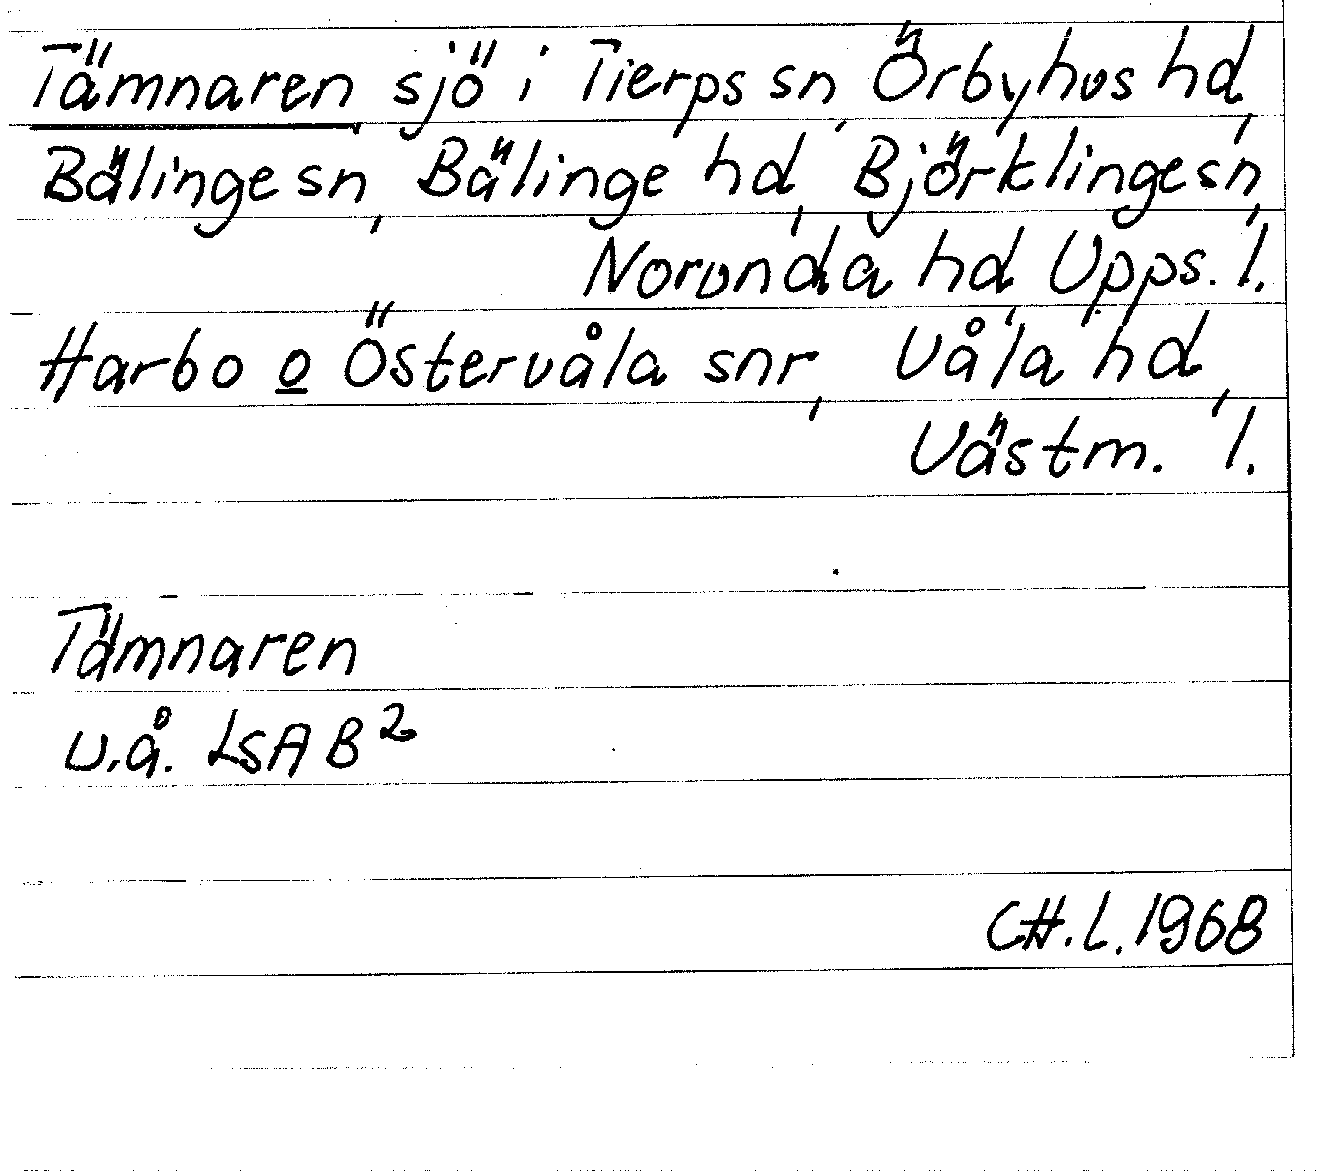 Tämnaren sjö i Tierps sn, Örbyhus hd,
Bälinge sn, Bälinge hd, Björklinge sn,
Norunda hd, Upps. l.
Harbo o Östervåla snr, Våla hd,
Västm. l.
Tämnaren
u.å. LSA B²
CH.L. 1968